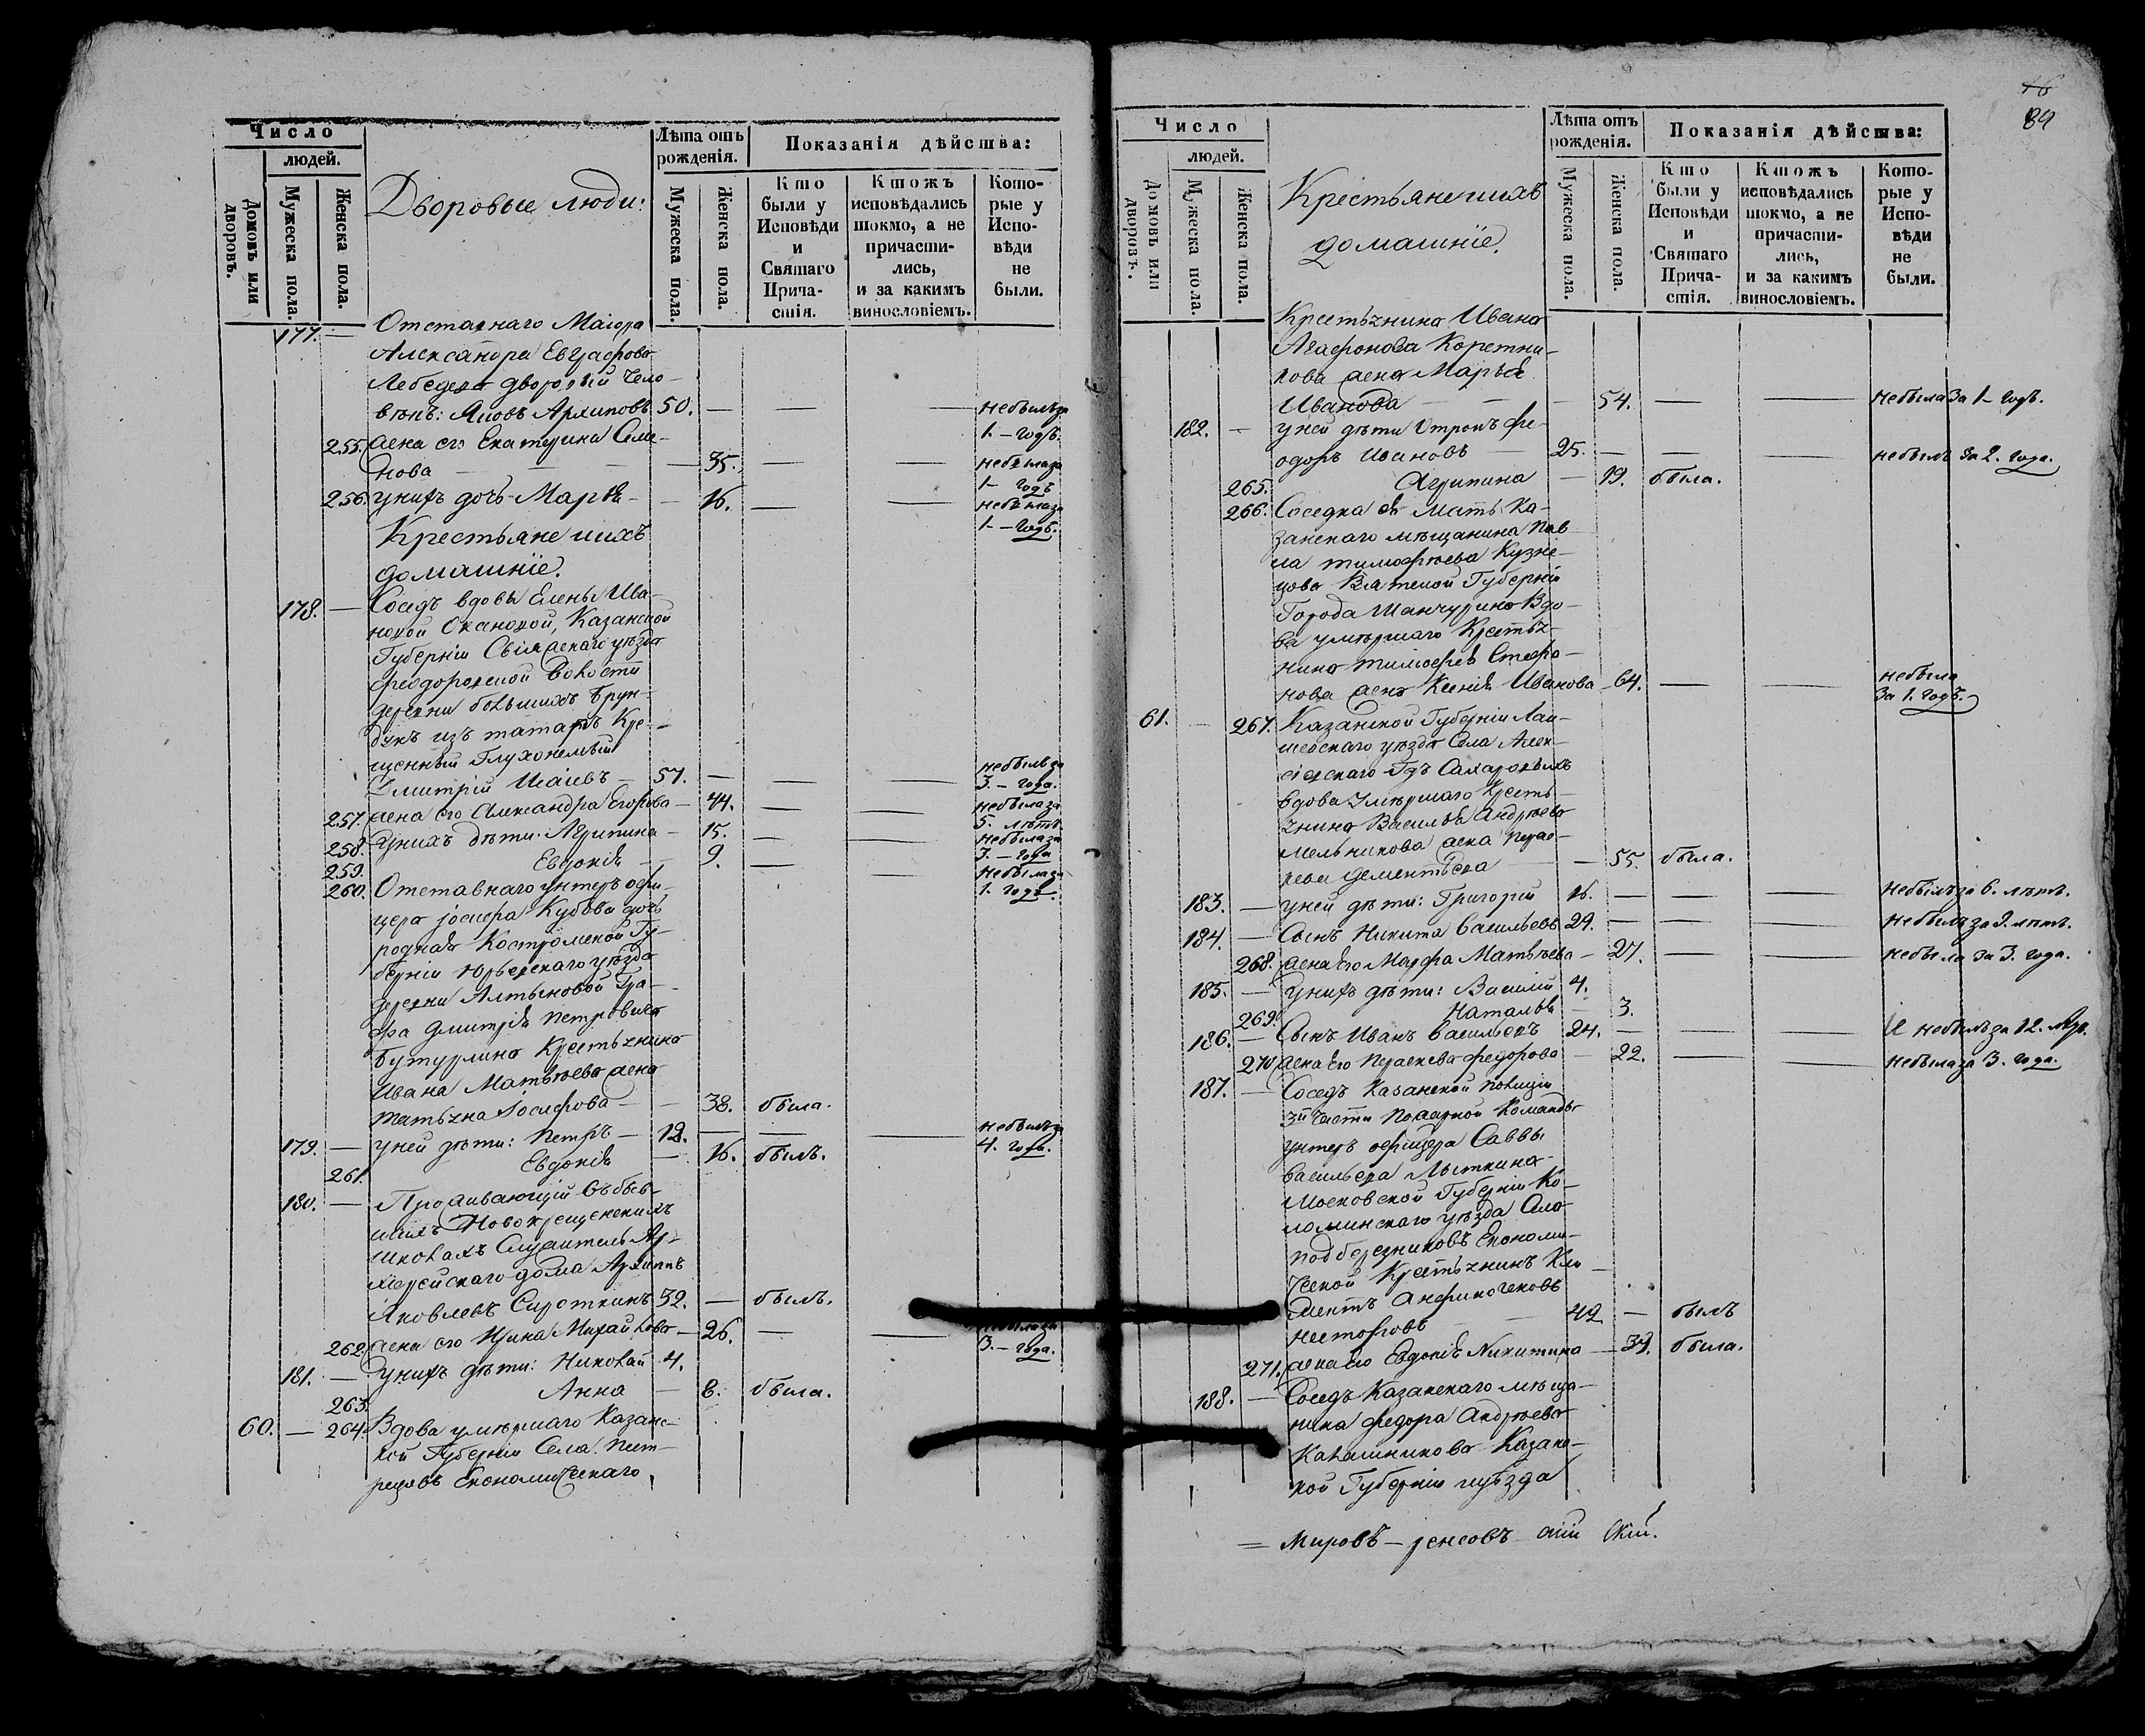 Число
людей.
Домовъ или дворовъ.
Мужеска пола.
Женска пола.
Дворовые люди:
Лѣта отъ рожденія.
Мужеска пола.
Женска пола.
Показанія дѣйства:
Кто были у Исповѣди и Святаго Причастія.
Ктожъ исповѣдались токмо, а не причастились, и за какимъ винословіемъ.
Которые у Исповѣди не были.
177. — Отставнаго Маіора
Александра Евграфова
Лебедева дворовый чело-
вѣкъ: Яковъ Архиповъ 50. — — — небылъ за
1.— годъ.
255. жена его Екатерина Семе-
нова — — — — 35. — — небыла за
1— годъ
256. унихъ дочь Марья — — 16. — — небыла за
1.— годъ.
Крестьяне ихъ
домашніе.
178. — Сосѣдъ вдовы Елены Ива-
новой Казанской
Губерніи Свіяжскаго уѣзда
Феодоровской Волости
деревни большихъ Брун-
дукъ изъ татаръ Кре-
щенный Глухонемый
Дмитрій Исаевъ — 57. — — — небылъ за
3.— года.
257. жена его Александра Егорова — 44. — — небыла за
5. лѣтъ.
258. Унихъ дѣти: Агрипина — 15. — — небыла за
3.— года
259. Евдокія — 9. — — небыла за
1. годъ.
260. Отставнаго унтеръ офи-
цера Іосифа Кубова дочь
родная Костромской Гу-
берніи Юрьевскаго уѣзда
деревни Алтыновой Гра-
фа Дмитрія Петровича
Бутурлина Крестьянина
Ивана Матвѣева жена
Татьяна Іосифова — — 38. была.
179. — уней дѣти: Петръ — 12. — — — небылъ за
4. года.
261. Евдокія — 16. былъ.
180. — Проживающій въ быв-
шихъ Новокрещенскихъ
школахъ Служитель Ар-
хіерейскаго дома Архипъ
Яковлевъ Сироткинъ 32. — былъ.
262. жена его Ирина Михайлова — 26. — — небыла за
3.— года.
181. — Унихъ дѣти: Николай 4.
263. Анна — 8. была.
60. — 264. Вдова умершаго Казанс-
кой Губерніи Села Пест-
рецовъ Економическаго
89
Число
людей.
Домовъ или дворовъ.
Мужеска пола.
Женска пола.
Крестьяне ихъ
домашніе.
Лѣта отъ рожденія.
Мужеска пола.
Женска пола.
Показанія дѣйства:
Кто были у Исповѣди и Святаго Причастія.
Ктожъ исповѣдались токмо, а не причастились, и за какимъ винословіемъ.
Которые у Исповѣди не были.
Крестьянина Ивана
Агафонова Каретни-
кова жена Марья
Иванова — — — 54. — — небыла за 1— годъ.
182. — уней дѣти Отрокъ Фе-
одоръ Ивановъ — 25. — — — небылъ за 2. года.
265. Агрипина — 19. была.
266. Соседка ея мать Ка-
занскаго мѣщанина Пав-
ла Тимофѣева Кузне-
цова Вятской Губерніи
Города Шанчурина Вдо-
ва умершаго Крестья-
нина Тимофея Стефа-
нова жена Ксенія Иванова — 64. — — небыла
за 1. годъ.
61. — 267. Казанской Губерніи Лаи-
шевскаго уѣзда Села Алек-
сіевскаго Гдъ Сахаровыхъ
вдова умершаго Кресть-
янина Василья Андреева
Мельникова жена Праско-
вья Дементьева — 55. была.
183. — уней дѣти: Григорій 16. — — — небылъ за 6. лѣтъ.
184. — Сынъ Никита Васильевъ 29. — — — небылъ за 9. лѣтъ.
268. жена его Марфа Матвѣева — 27. — — небыла за 3. года.
185. — Унихъ дѣти: Василій 4.
269. Наталья — 3.
186. — Сынъ Иванъ Васильевъ 24. — — — небылъ за 12. лѣтъ.
270. жена его Прасковья Федорова — 22. — — небыла за 3. года.
187. — Сосѣдъ Казанской полиціи
3й части Пожарной Команды
унтеръ офицера Саввы
Васильева Лыткина
Московской Губерніи Ко-
ломинскаго уѣзда Села
Подберезниковъ Економи-
ческой Крестьянинъ Кли-
ментъ
Несторовъ — — 42 — былъ
271. жена его Евдокія Никитина — 39. была.
188. — Сосѣдъ Казанскаго мѣща-
нина Федора Андреева
Калашникова Казанс-
кой Губерніи и уѣзда